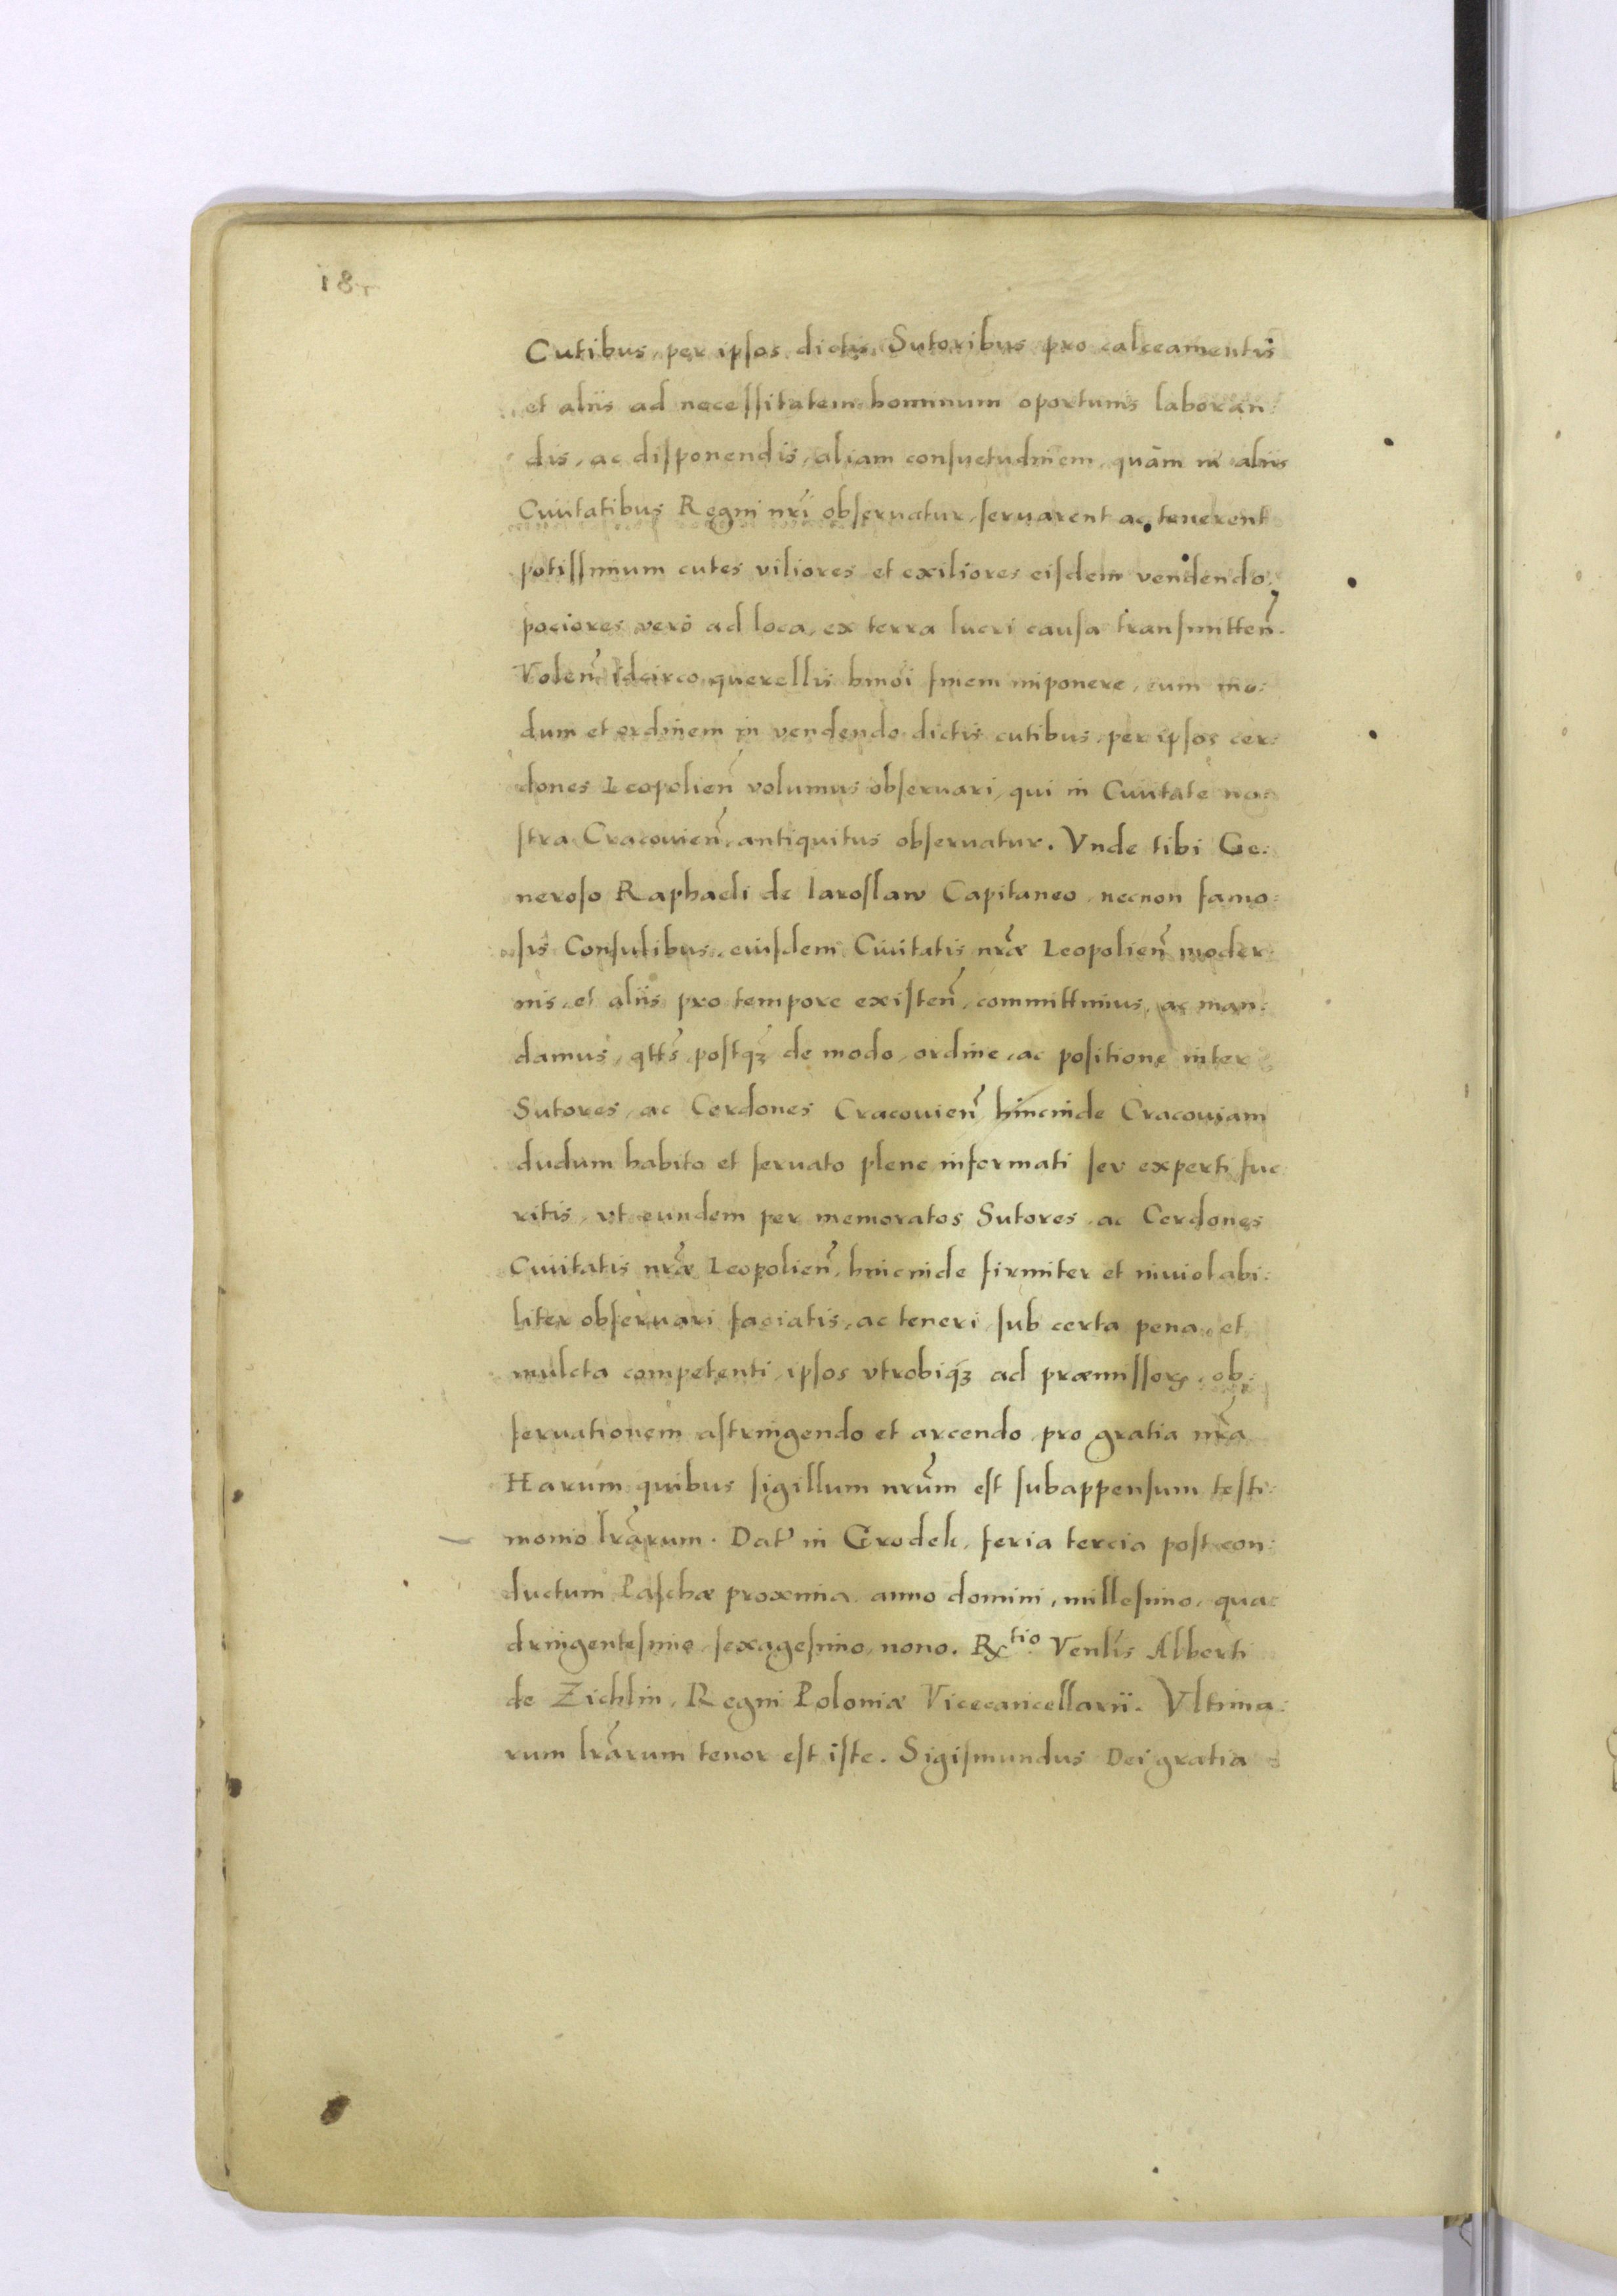 18
Cutibus, per ipsos dictis Sutoribus pro calceamentis
et aliis ad necessitatem hominum oportunis laboran:
dis, ac disponendis, aliam consuetudinem, quàm in aliis
Ciuitatibus Regni nr̃i obseruatur, seruarent ac tenerent
potissimum cutes viliores et exiliores eisdem vendendo,
pociores verò ad loca, ex terra lucri causa transmitteñ.
Voleñ idcirco querellis hmõi finem imponere, eum mo:
dum et ordinem in vendendo dictis cutibus, per ipsos cer:
dones Leopolieñ volumus obseruari, qui in Ciuitate no:
stra Cracouieñ, antiquitus obseruatur. Vnde tibi Ge:
neroso Raphaeli de Iaroslaw Capitaneo, necnon famo:
sis Consulibus, eiusdem Ciuitatis nr̃æ Leopolieñ moder:
nis, et aliis pro tempore existeñ, committimus, ac man:
damus, qtt̃s, postqȝ de modo, ordine, ac positione inter
Sutores, ac Cerdones Cracouieñ hincinde Cracouiam
dudum habito et seruato plene informati seu experti fue
ritis, vt eundem per memoratos Sutores, ac Cerdones
Ciuitatis nr̃æ Leopolieñ, hincinde firmiter et inuiolabi:
liter obseruari faciatis, ac teneri sub certa pena, et
mulcta competenti, ipsos vtrobiqȝ ad præmissorꝝ, ob:
seruationem astringendo et arcendo pro gratia nr̃a
Harum quibus sigillum nr̃um est subappensum testi:
monio lr̃arum. Dat̃ in Grodek, feria tercia post con:
ductum Paschæ proxima anno domini, millesimo, qua
dringentesimo, sexagesimo, nono. Rx tio Venlis Alberti
de Zichlin, Regni Poloniæ Vicecancellarii. Vltima:
rum lr̃arum tenor est iste. Sigismundus Dei gratia